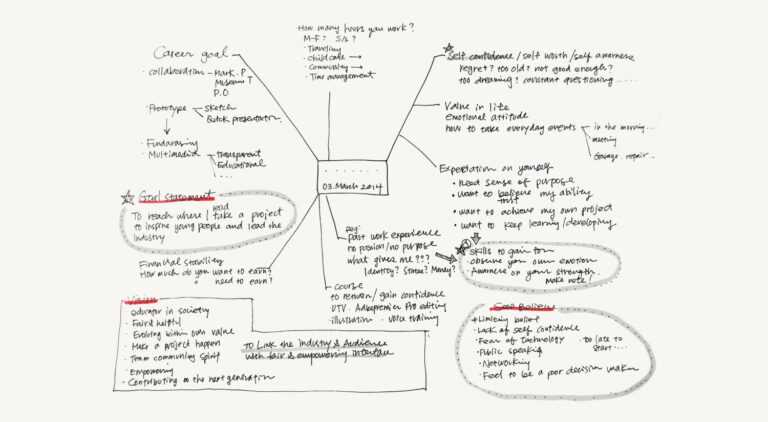 How many hours you work?
M-F? S/S?
· Traveling
· Childcare →
· Community →
· Time management
Career goal
· collaboration - Mark. P
Museum T
P.O
· Prototype - Sketch
Quick presentation.
· Fundraising
· Multimedia - Transparent
Educational
....
☆ Goal statement
To reach where I take a project
lead
to inspire young people and lead the
industry
Financial stability
How much do you want to earn?
need to earn?
Vision
· educator in society
· Fair & helpful
· Evolving within own value
· Make a project happen
· Team community spirit
· Empowering
· Contributing to the next generation
to Link the industry & Audience
with fair & empowering interface
.......
03. March 2014
☆ Self confidence / self worth / self awarness
regret? too old? not good enough?
too dreaming? constant questioning .....
Value in life
Emotional attitude
how to take everyday events
in the morning...
meeting
damage. repair...
Expectation on yourself
• Need sense of purpose
• want to believe my ability
trust
• want to achieve my own project
• want to keep learning / developing
past work experience
no passion / no purpose
what gives me???
Identity? Status? Money?
· course
to return / gain confidence
UTV. Adbepremier Pro editing
illustration · voice training
☆ Skills to gain
· observe your own emotion
· Awarness on your strength
make note!
• Limiting belief
· Lack of self confidence
· Fear of technology
· too late to
start....
· Public speaking
· Networking
· Feel to be a poor decision maker